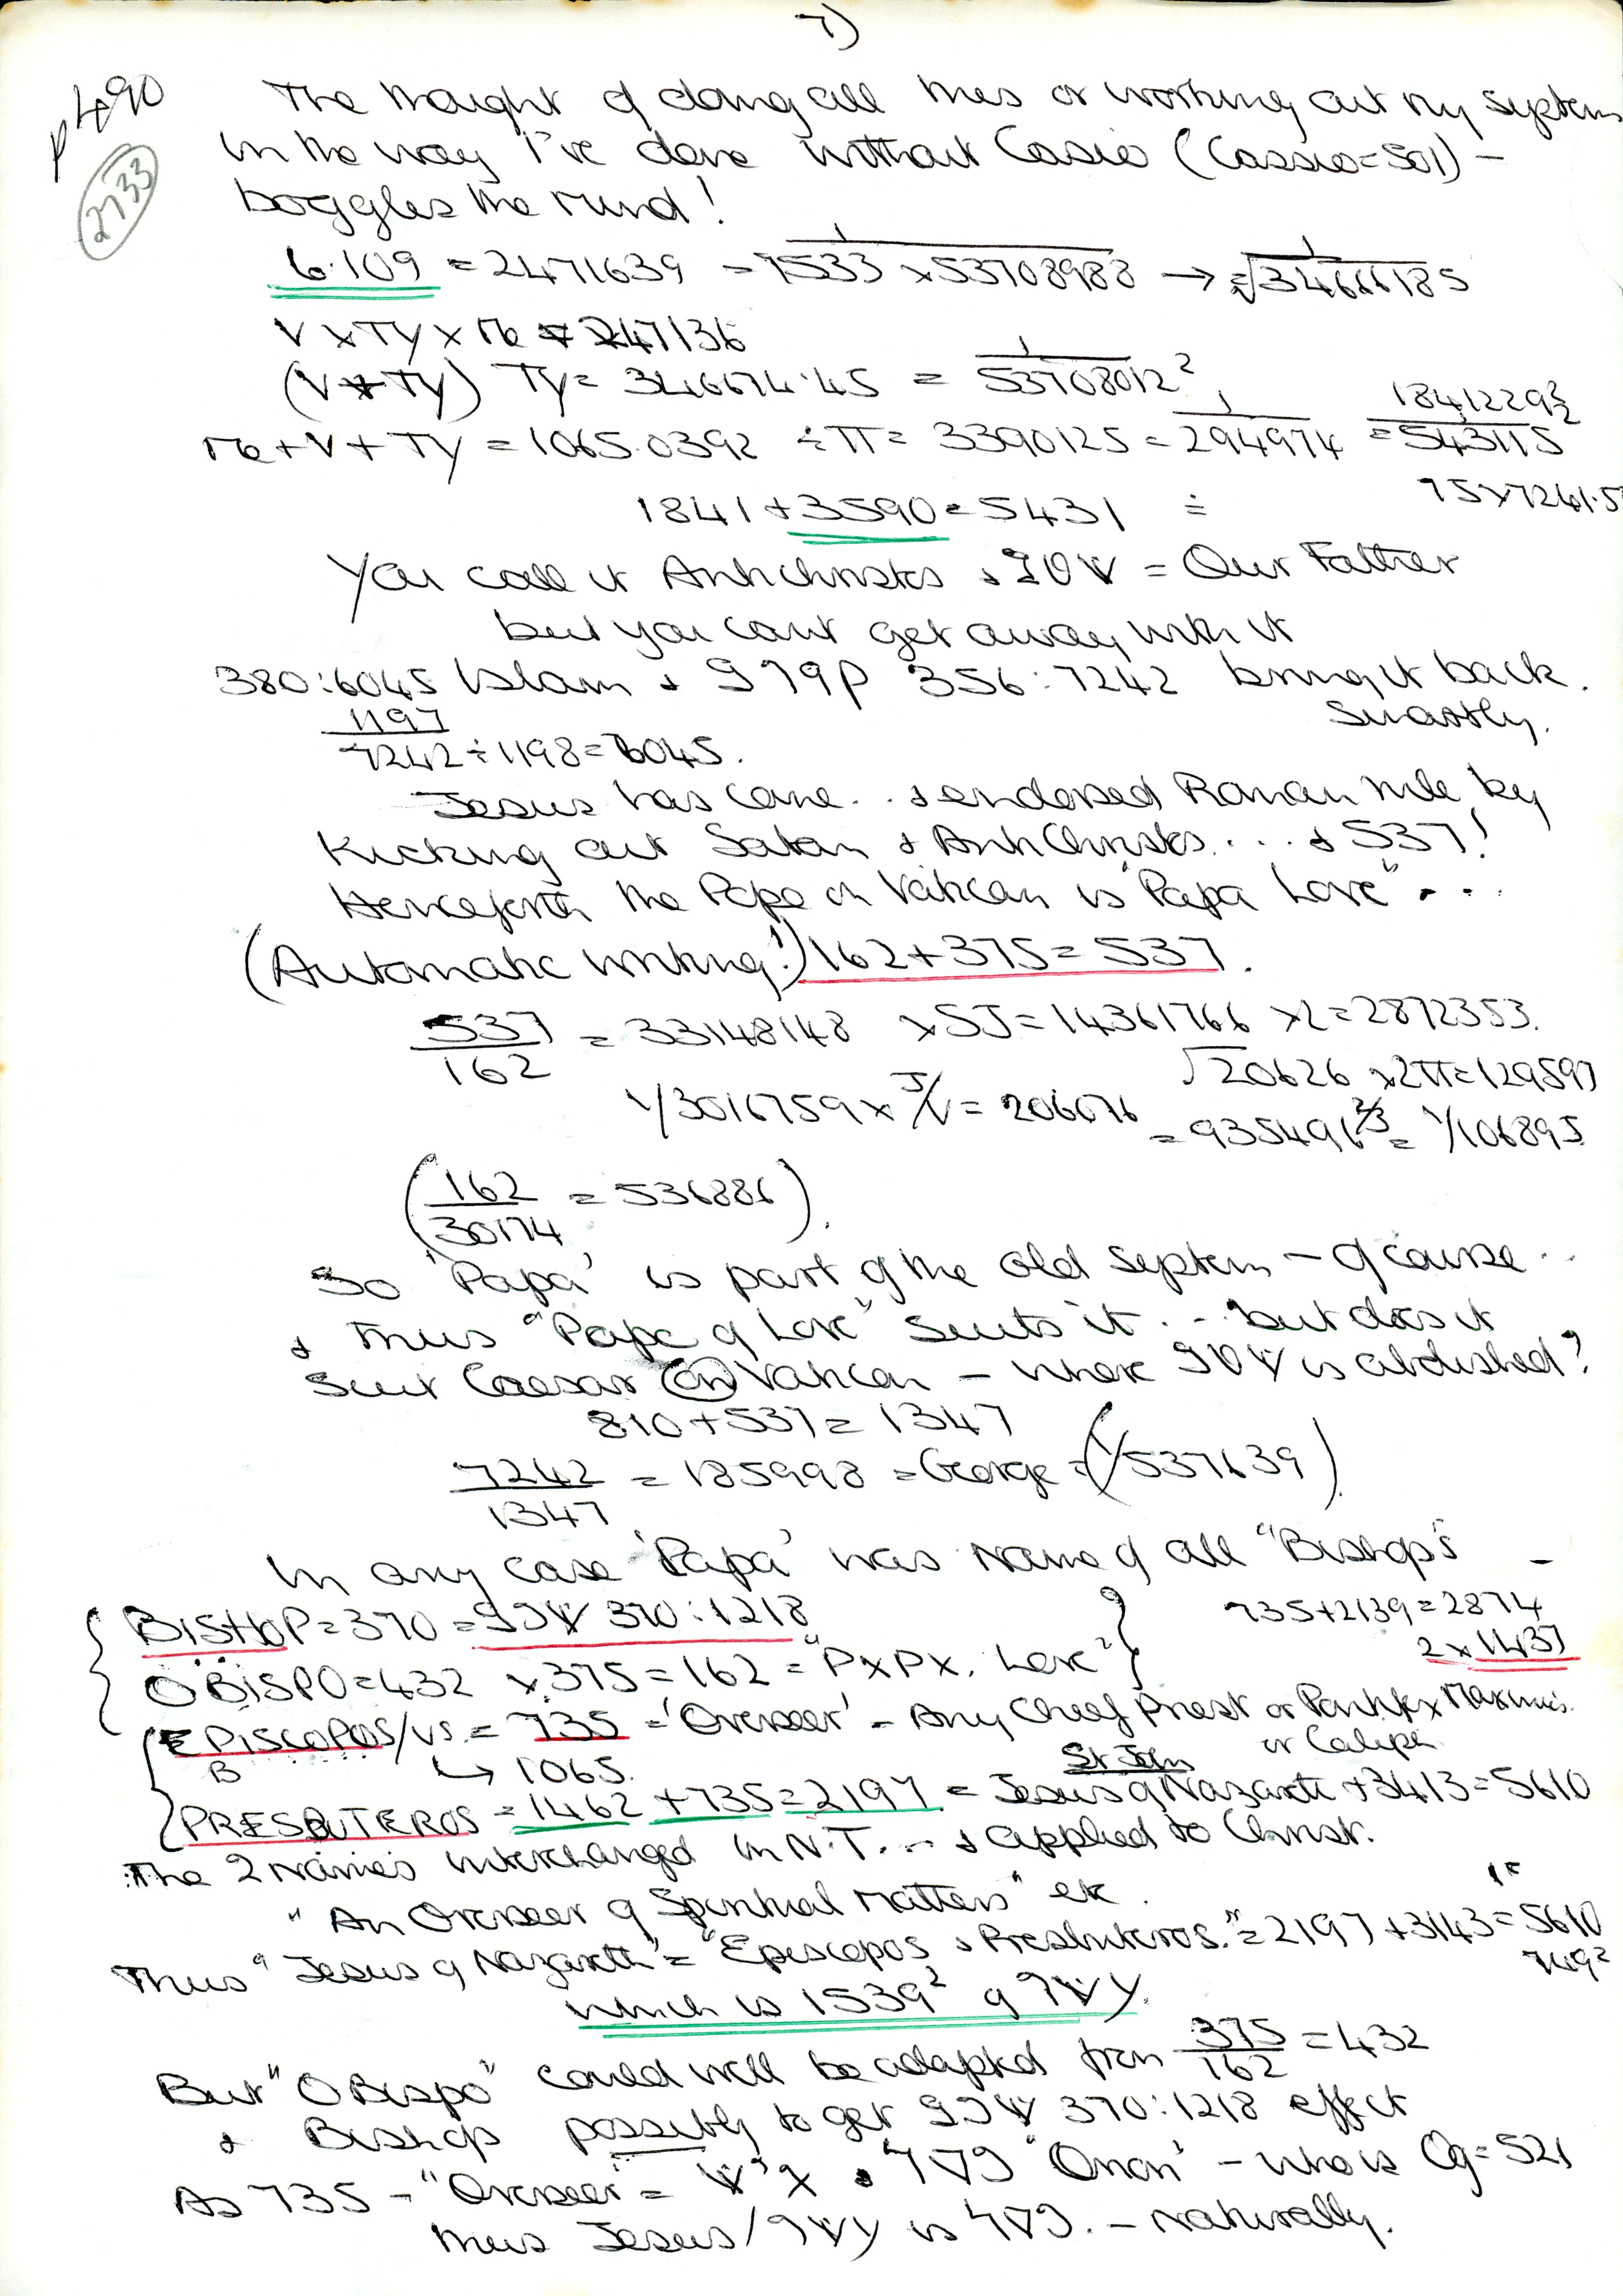 7)
p490
2733
The thought of doing all this or working out my system
in the way I've done without Casio (Cassio=501) –
boggles the mind!
6·109 = 2471639 = 7533 x 53708988 → = √34666185
V x TY x Πe = 247136
(V + TY) TY = 346674·45 = 53708012²
Πe + V + TY = 1065.0392 ÷ π = 3390125 = 294974 = 543115
1841 + 3590 = 5431 ÷
75x7241·5
You call it Antichrists
= Our Father
but you can't get away with it
380:6045 Islam
356:7242 bring it back.
1197
Smartly.
7242 ÷ 1198 = 6045.
Jesus has come.. & endorsed Roman rule by
Kicking out Satan & AntiChrists.... & 537!
Henceforth the Pope on Vatican is "Papa Love"...
(Automatic writing!) 162+375=537.
537/162 = 33148148 x 5J = 14361766 x 2 = 2872353.
√20626 x 2π = 129597
1/3016759 x J/V = 206676 = 935491⅔ = 1/106895
(162/30174 = 536886).
So 'Papa' is part of the old system – of course..
& thus "Pope of Love" suits it... but does it
suit Caesar on Vatican – where
is abolished?
810+537 = 1347
7242/1347 = 185998 = George = (1/537639)
In any case 'Papa' was Name of all "Bishops" –
BISHOP = 370 =
370:1218
735+2139=2874
2 x 1437
OBISPO=432 x 375 = 162 = "PxPx. Love"
EPISCOPOS/us = 735 = 'Overseer' – Any Chief Priest or Pontifex Maximus.
or Caliph
B
↳ 1065.
St John
PRESBUTEROS = 1462 + 735 = 2197 = Jesus of Nazareth + 3413 = 5610
The 2 Names interchanged in N.T. ... & applied to Christ.
"An Overseer of Spiritual Matters" etc.
Thus "Jesus of Nazareth" = "Episcopos & Presbuteros." = 2197 + 3143 = 5610
749²
which is 1539² of
But "OBispo" could well be adapted from 375/162 = 432
& Bishop possibly to get
370:1218 effect
As 735 – "Overseer" =
'Onan' – who is Og = 521
thus Jesus/
is
– Naturally.